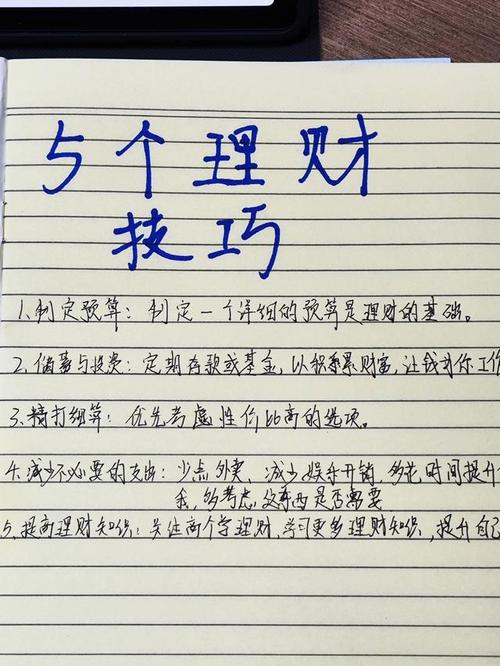 5个理财
技巧
1.制定预算：制定一个详细的预算是理财的基础。
2.储蓄与投资：定期存款或基金，以积累财富，让钱为你工作
3.精打细算：优先考虑性价比高的选项。
4.减少不必要的支出：少点外卖、减少娱乐开销，多花时间提升
我，多考虑这东西是否需要
5.提高理财知识：关注高个学理财，学习更多理财知识，提升自己